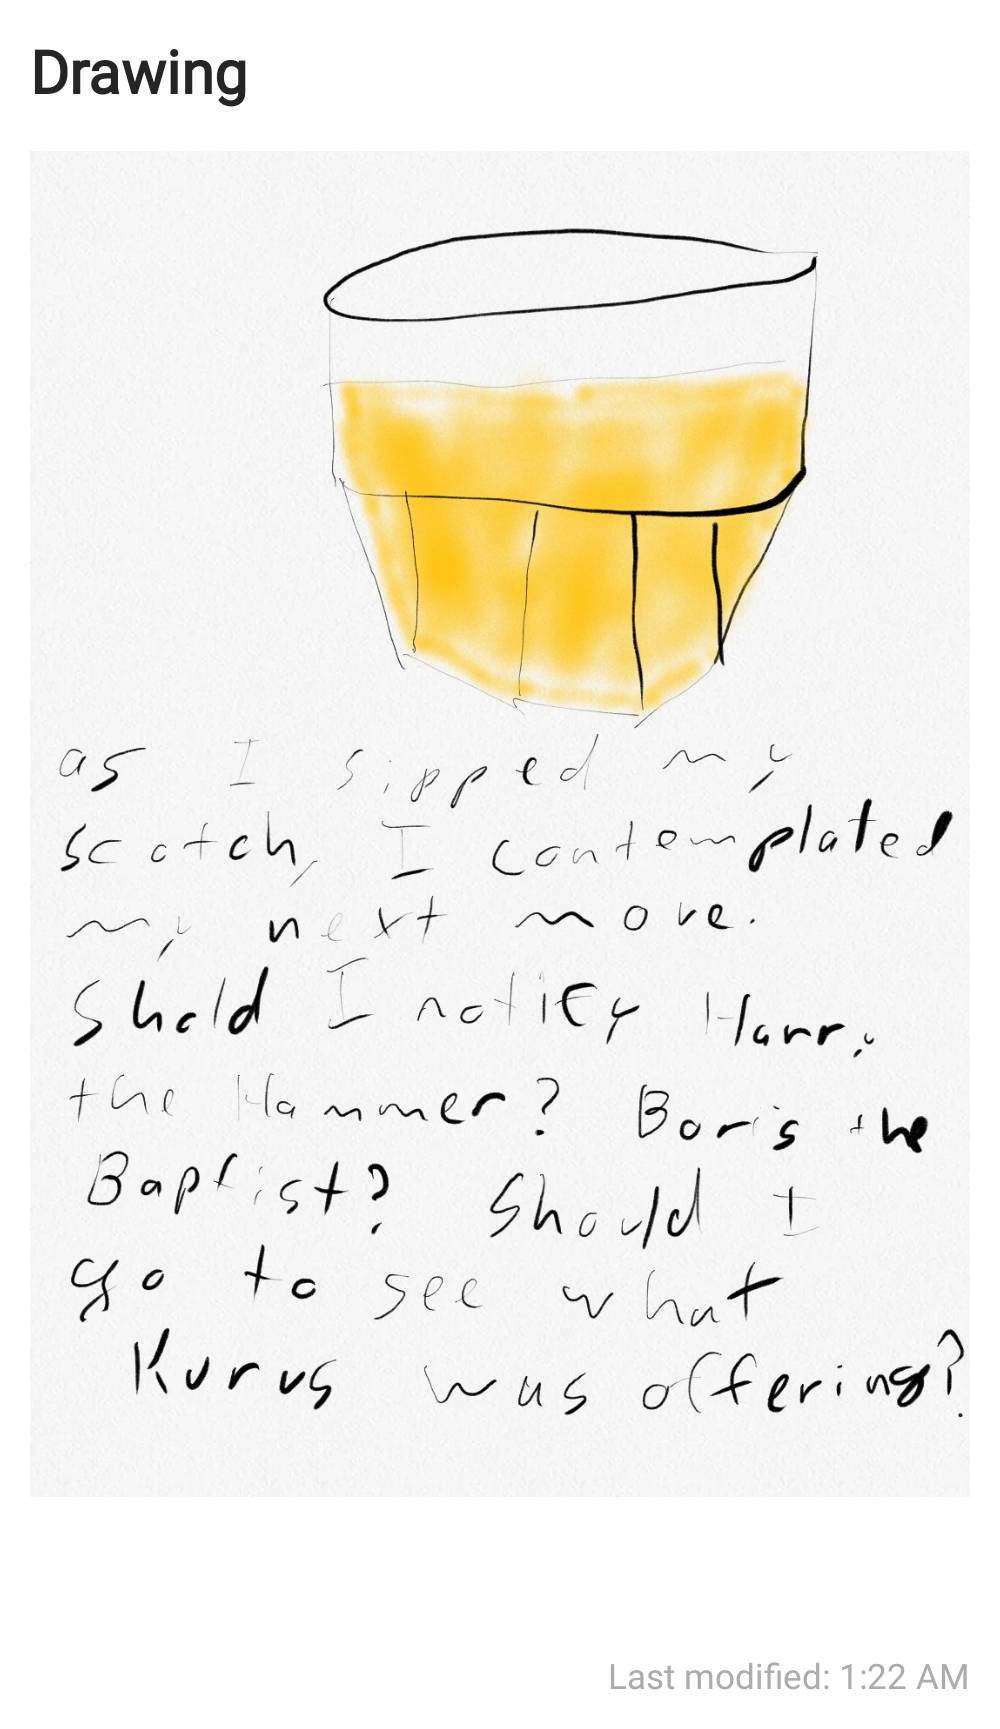 Drawing
as I sipped my
scotch, I contemplated
my next move.
Shold I notify Harry
the Hammer? Boris the
Baptist? Should I
go to see what
Kurus was offering?
Last modified: 1:22 AM